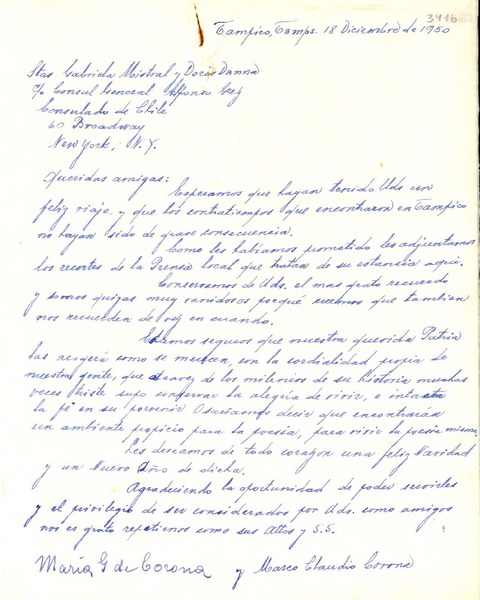 3416
Tampico, Tamps. 18 Diciembre de 1950
Stas Gabriela Mistral y Doris Danna
c/o Consul General Alfonso Grez
Consulado de Chile
60 Broadway
New York, N.Y.
Queridas amigas:
Esperamos que hayan tenido Uds un
feliz viaje, y que los contratiempos que encontraron en Tampico
no hayan sido de grave consecuencia.
Como les habíamos prometido les adjuntamos
los recortes de la Prensa local que tratan de su estancia aquí.
Conservamos de Uds. el mas grato recuerdo
y somos quizas muy vanidosos porqué creemos que tambien
nos recuerden de vez en cuando.
Estamos seguros que nuestra querida Patria
las acogerá como se merecen, con la cordialidad propia de
nuestra gente, que atravez de los milenios de su historia muchas
veces triste supo conservar la alegria de vivir, e intacta
la fé en su porvenir Osariamos decir que encontrarán
un ambiente propicio para la poesía, para vivir la poesia misma.
Les deseamos de todo corazon una feliz Navidad
y un Nuevo Año de dicha.
Agradeciendo la oportunidad de poder servirles
y el privilegio de ser considerados por Uds. como amigos
nos es grato repetirnos como sus Attos y S.S.
María G de Corona y Marco Claudio Corona